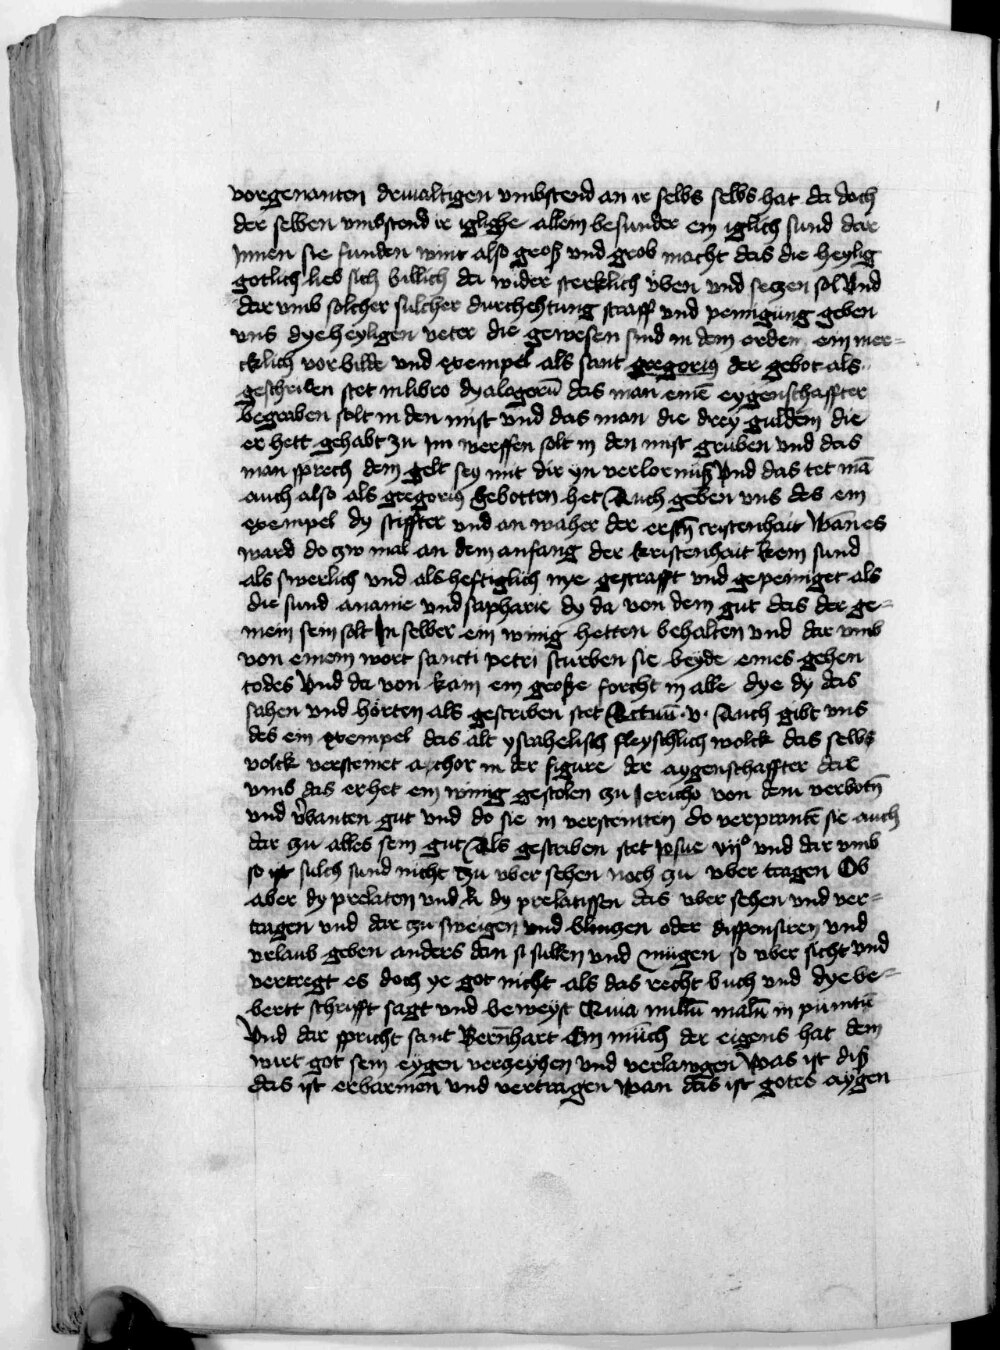 vorgenanten dewaltigen vmbstend an ir selbs selbs hat da doch
der selben vmbstend ir iglighe allein besunder ein iglich sund dar
Innen sie funden wirt also groß vnd grob macht das die heylig
gotlich lieb sich billich da wider sterklich vben vnd seczen sol Vnd
dar vmb solcher sulcher durchehtung straff vnd peinigung geben
vns dye heyligen veter die gewesen sind in dem orden ein mer=
cklich vorbilde vnd exempel als sant gregorius der gebot als
geschriben stet in libro dyalogorū das man einē eygenschaffter
begraben solt in den mist vnd das man die drey guldein die
er hett gehabt zu im werffen solt in den mist gruben vnd das
man sprech dein gelt sey mit dir yn verlornuß Vnd das tet mā
auch also als gregorius gebotten het Auch geben vns des ein
exempel dy stiffter vnd an waher der erstn̄ cristenhait Wān es
ward do zw mal an dem anfang der kristenhait kein sund
als swerlich vnd als heftiglich nye gestrafft vnd gepeiniget als
die sund ananie vnd sapharie dy da von dem gut das der ge=
mein sein solt In selber ein winig hetten behalten vnd dar vmb
von einem wort sancti petri sturben sie beyde eines gehen
todes Vnd da von kam ein große forcht in alle dye dy das
sahen vnd hörten als gescriben stet Actuū · v · Auch gibt vns
des ein exempel das alt ysrahelisch fleyschlich wolck das selbs
volck versteinet achor in der figure der aygenschaffter dar
vms das er het ein winig gestolen zu Jericho von dem verbotn̄
vnd vbanten gut vnd do sie in versteinten do verprantē sie auch
dar zu alles sein gut Als gescriben stet Josue vijº vnd dar vmb
so ist sulch sund nicht zu vber sehen noch zu vber tragen Ob
aber dy prelaten vnd dy prelatissen das vber sehen vnd ver=
tragen vnd dar zu sweigen vnd blinczen oder dispensiren vnd
vrlaub geben anders dan si sullen vnd mügen so vber sicht vnd
vertregt es doch ye got nicht als das recht buch vnd dye be=
bertt schrifft sagt vnd beweyst Quia nullū malū in punitū
Vnd dar spricht sant Bernhart Ein münch der eigens hat dem
wirt got sein eygen verzeyhen vnd verlawgen Was ist diß
das ist erbarmen vnd vertragen wan das ist gotes aygen